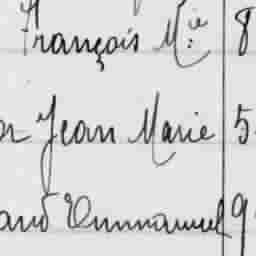 François M.ie 8
Jean Marie 5
Emmanuel 9